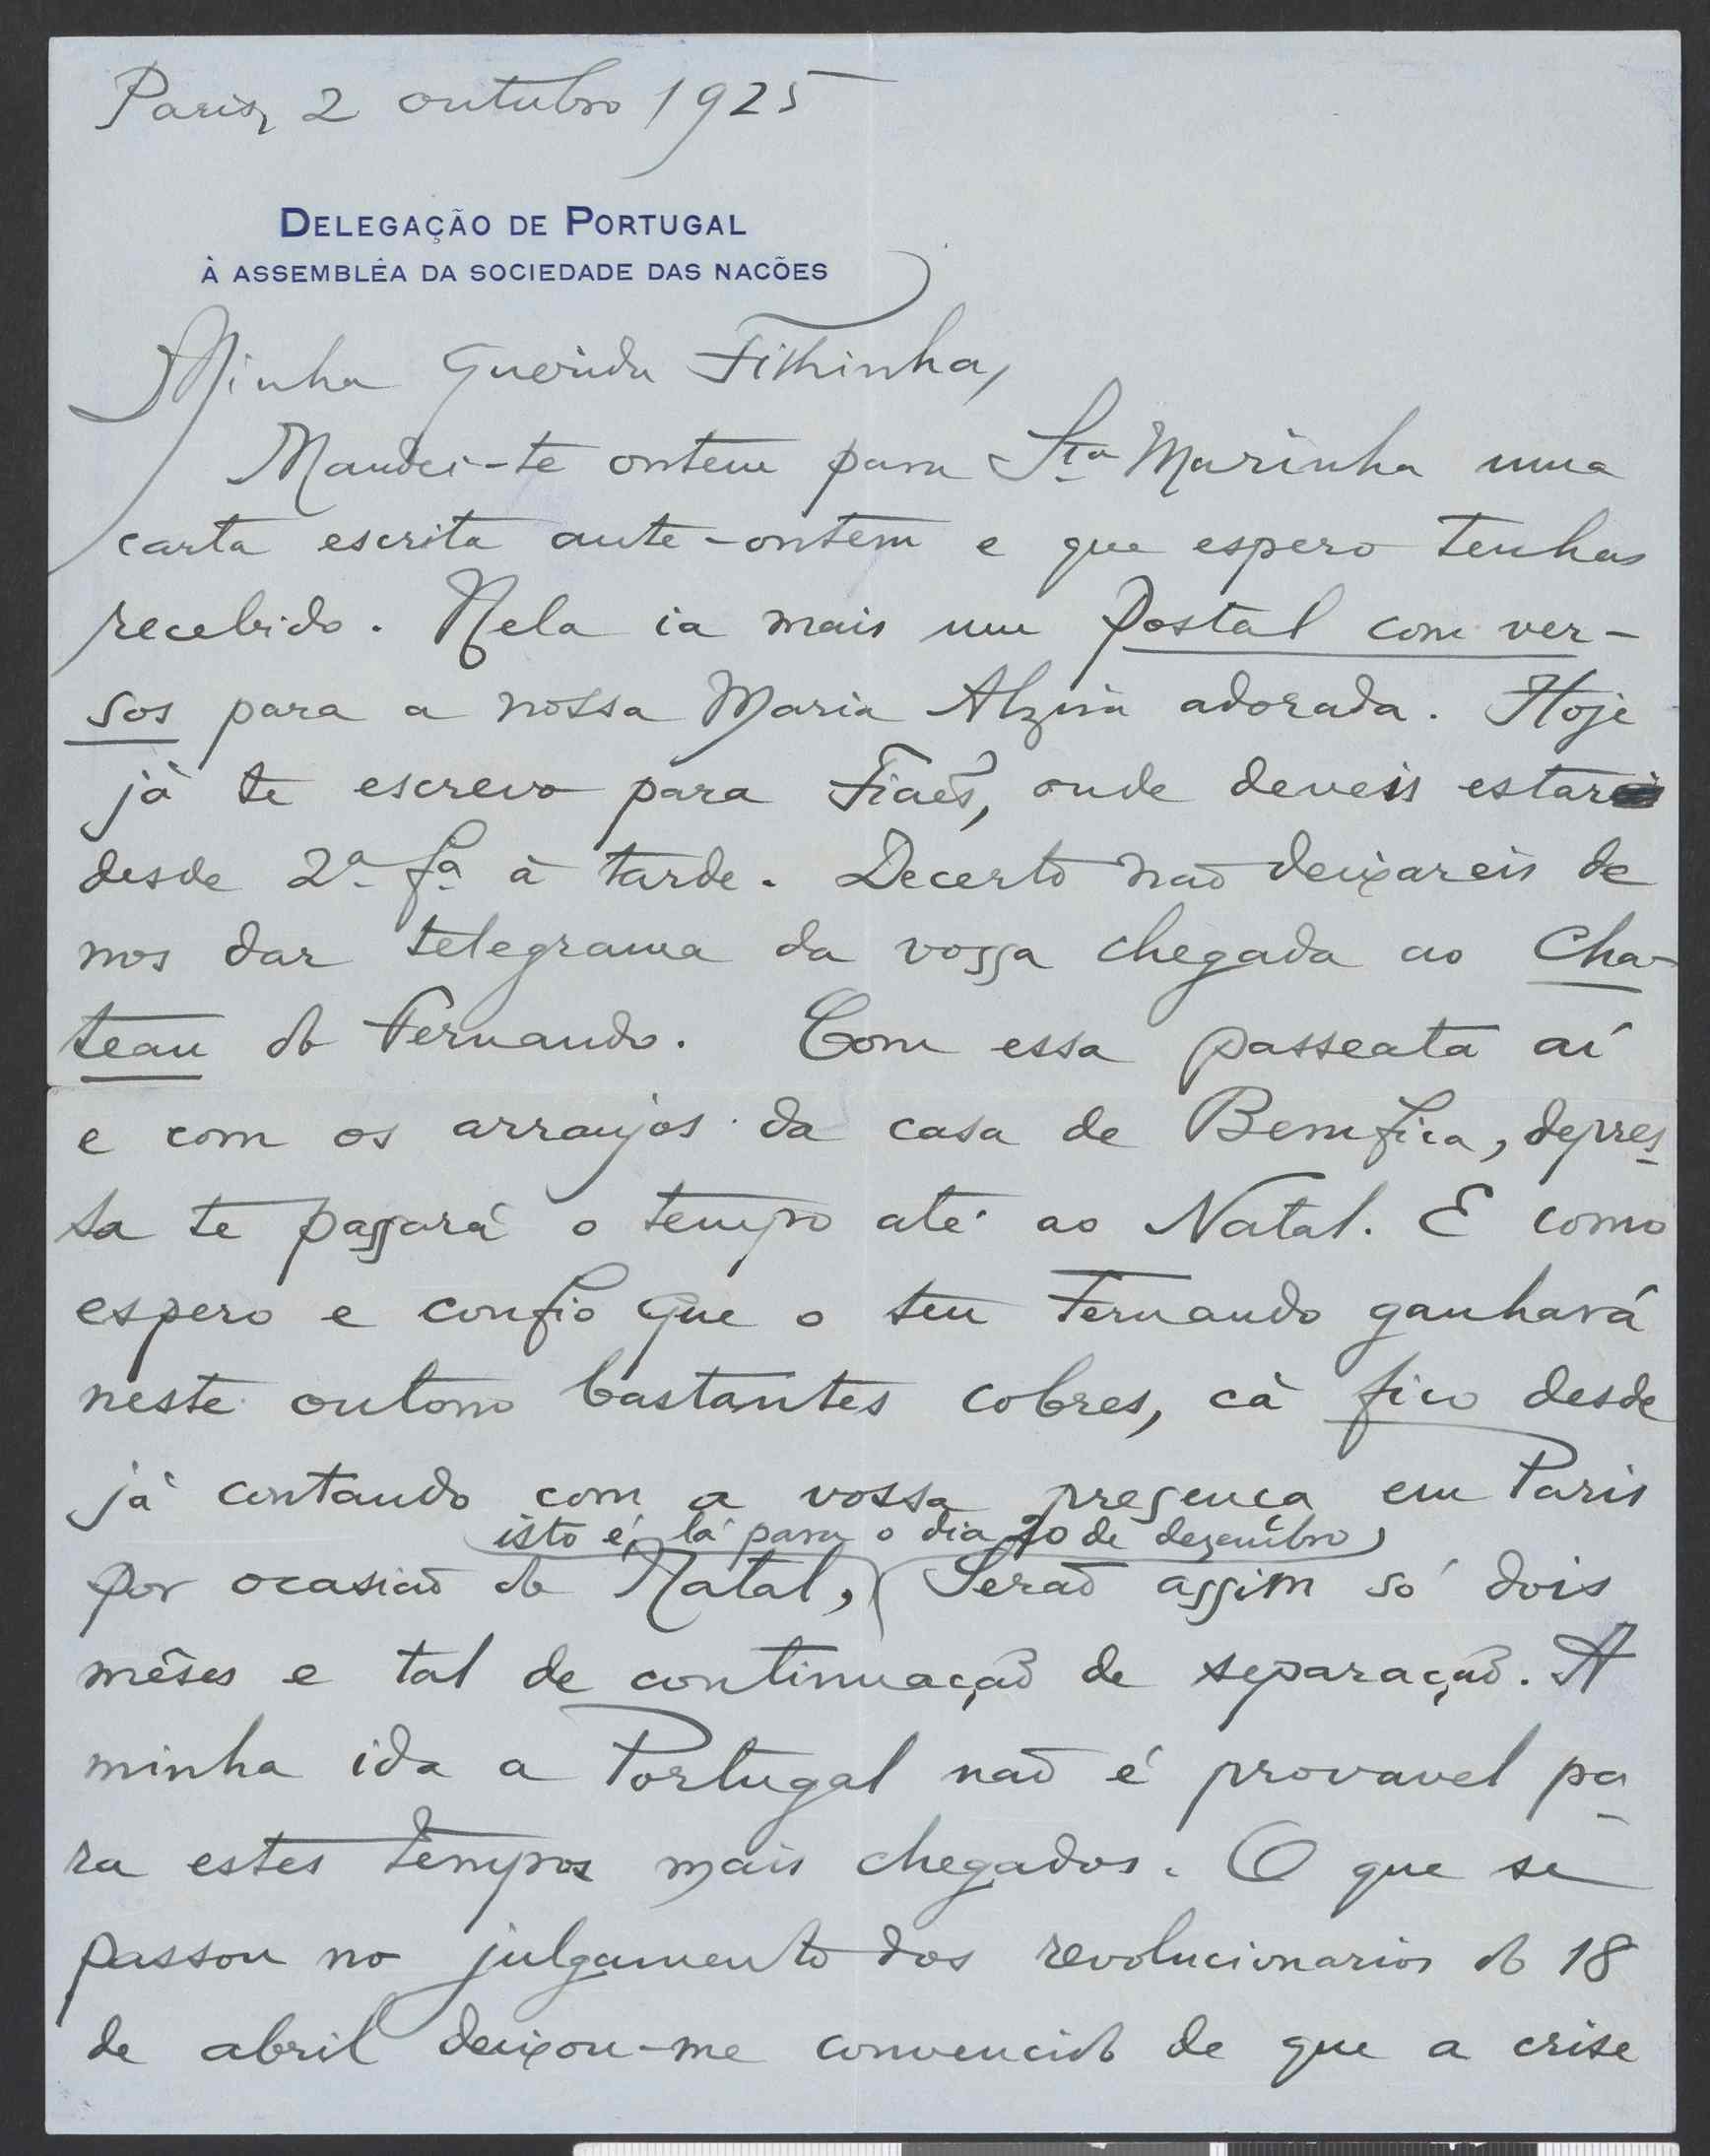 Paris, 2 outubro 1925
DELEGAÇÃO DE PORTUGAL
À ASSEMBLÊA DA SOCIEDADE DAS NACÕES
Minha Querida Filhinha,
Mandei-te ontem para Sta Marinha uma
carta escrita ante-ontem e que espero tenhas
recebido. Nela ia mais um postal com ver-
sos para a nossa Maria Alzira adorada. Hoje
já te escrevo para Fiaes, onde deveis estar
desde 2a fa á tarde. Decerto não deixareis de
nos dar telegrama da vossa chegada ao Cha-
teau do Fernando. Com essa passeata aí
e com os arranjos da casa de Bemfica, depres-
sa te passará o tempo até ao Natal. E como
espero e confio que o teu Fernando ganhará
neste outono bastantes cobres, cá fico desde
já contando com a vossa presença em Paris
isto é, lá para o dia 20 de dezembro
por ocasião do Natal, Serão assim só dois
mêses e tal de continuação de separação. A
minha ida a Portugal não é provavel pa-
ra estes tempos mais chegados. O que se
passou no julgamento dos revolucionarios do 18
de abril deixou-me convencido de que a crise